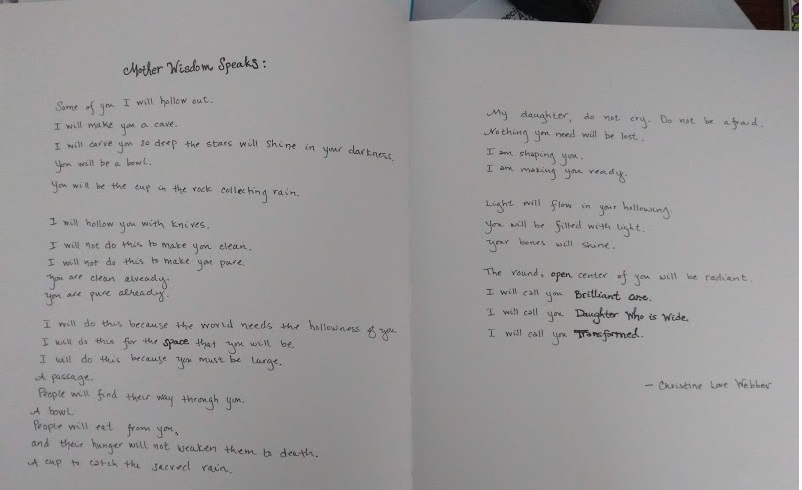 Mother Wisdom Speaks:
Some of you I will hollow out.
I will make you a cave.
I will carve you so deep the stars will shine in your darkness.
You will be a bowl.
You will be the cup in the rock collecting rain.
I will hollow you with knives.
I will not do this to make you clean.
I will not do this to make you pure.
You are clean already.
You are pure already.
I will do this because the world needs the hollowness of you
I will do this for the space that you will be.
I will do this because you must be large.
A passage.
People will find their way through you.
A bowl
People will eat from you,
and their hunger will not weaken them to death.
A cup to catch the sacred rain.
My daughter, do not cry. Do not be afraid.
Nothing you need will be lost.
I am shaping you.
I am making you ready.
Light will flow in your hollowing.
You will be filled with light.
Your bones will shine.
The round, open center of you will be radiant.
I will call you Brilliant One.
I will call you Daughter Who is Wide.
I will call you Transformed.
- Christine Lore Webber